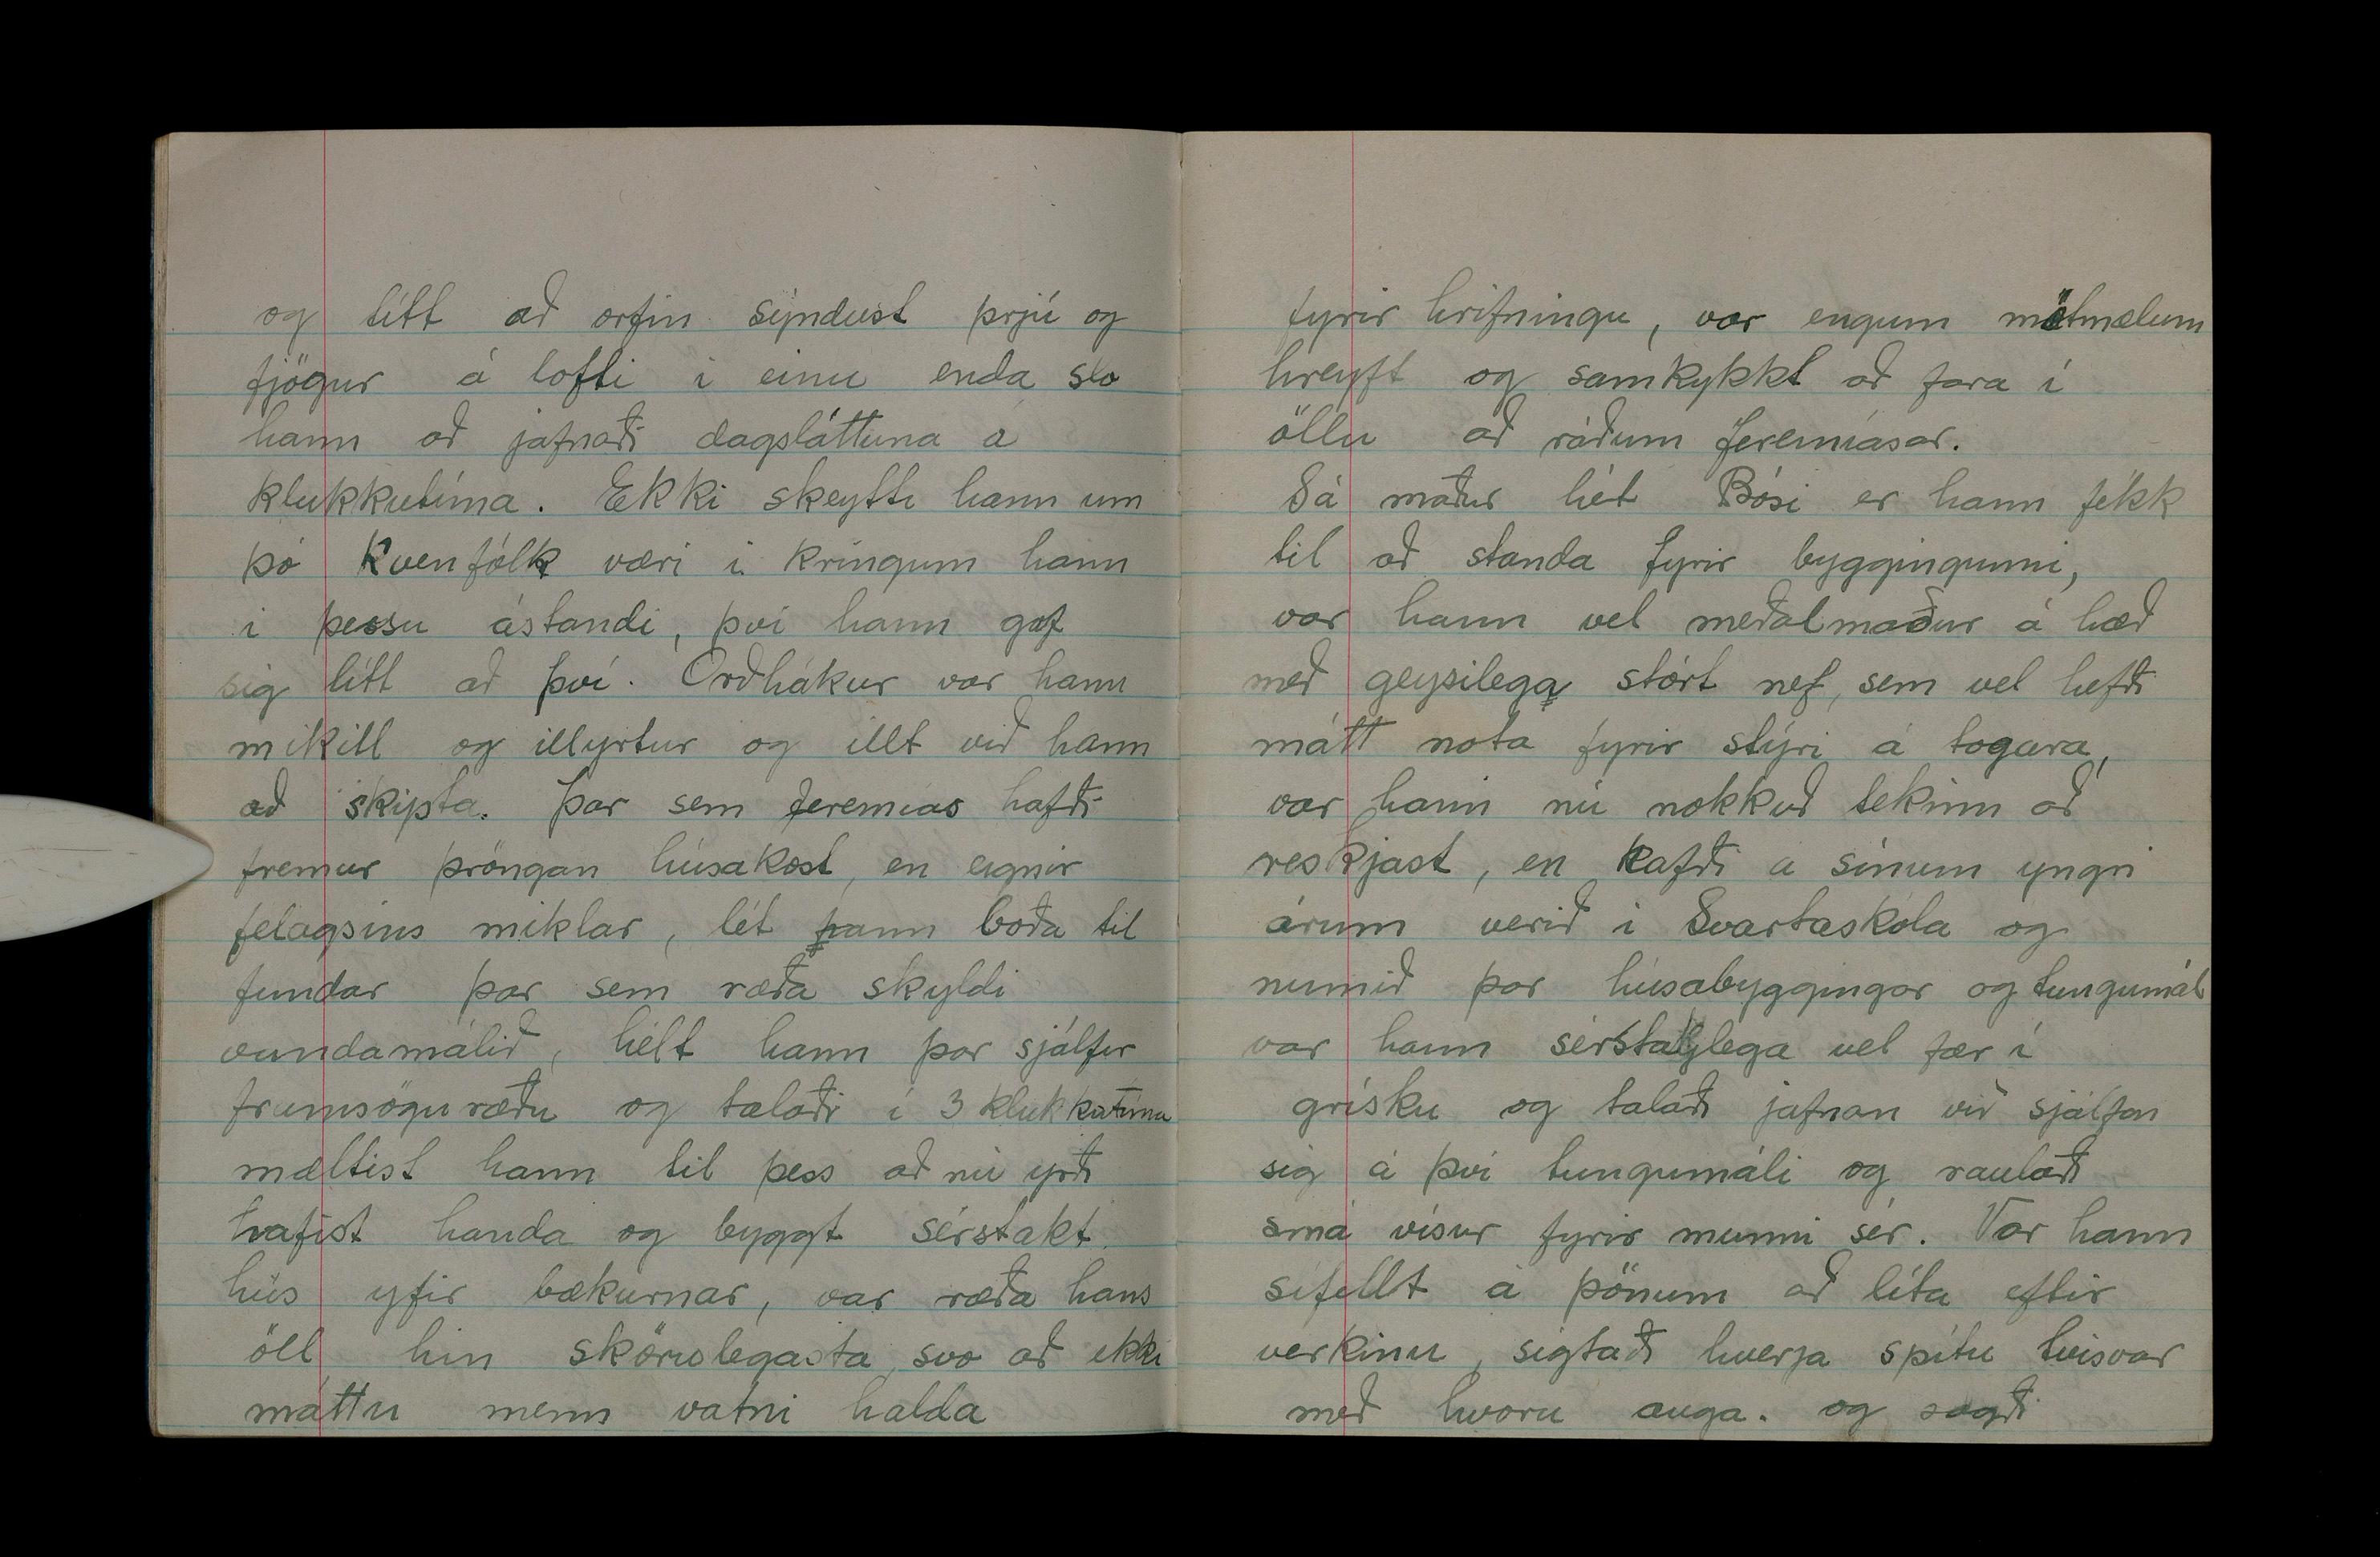 og títt að orfin sýndust þrjú og
fjögur á lofti í einu enda sló
hann að jafnaði dagsláttuna á
klukkutíma. Ekki skeytti hann um
þó kvenfólk væri í kringum hann
í þessu ástandi, því hann gaf
sig lítt að því. Orðhákur var hann
mikill og illyrtur og illt við hann
að skipta. Þar sem Jeremías hafði
fremur þröngan húsakost, en eignir
félagsins miklar, lét hann boða til
fundar þar sem ræða skyldi
vandamálið, hélt hann þar sjálfur
framsöguræðu og talaði í 3 klukkutíma
mæltist hann til þess að nú yrði
hafist handa og byggt sérstakt
hús yfir bækurnar, var ræða hans
öll hin skörulegasta, svo að ekki
máttu menn vatni halda
fyrir hrifningu, var engum mótmælum
hreyft og samkykkt að fara í
öllu að ráðum Jeremíasar.
Sá maður hét Bósi er hann fékk
til að standa fyrir byggingunni,
var hann vel meðalmaður á hæð
með geysilega stórt nef, sem vel hefði
mátt nota fyrir stýri á togara,
var hann nú nokkuð tekinn að
reskjast, en hafði á sínum yngri
árum verið í Svartaskóla og
numið þar húsabyggingar og tungumál
var hann sérstaklega vel fær í
grísku og talaði jafnan við sjálfan
sig á því tungumáli og raulaði
smá vísur fyrir munni sér. Var hann
sífellt á þönum að líta eftir
verkinu, sigtaði hverja spítu tvisvar
með hvoru auga. og sagði